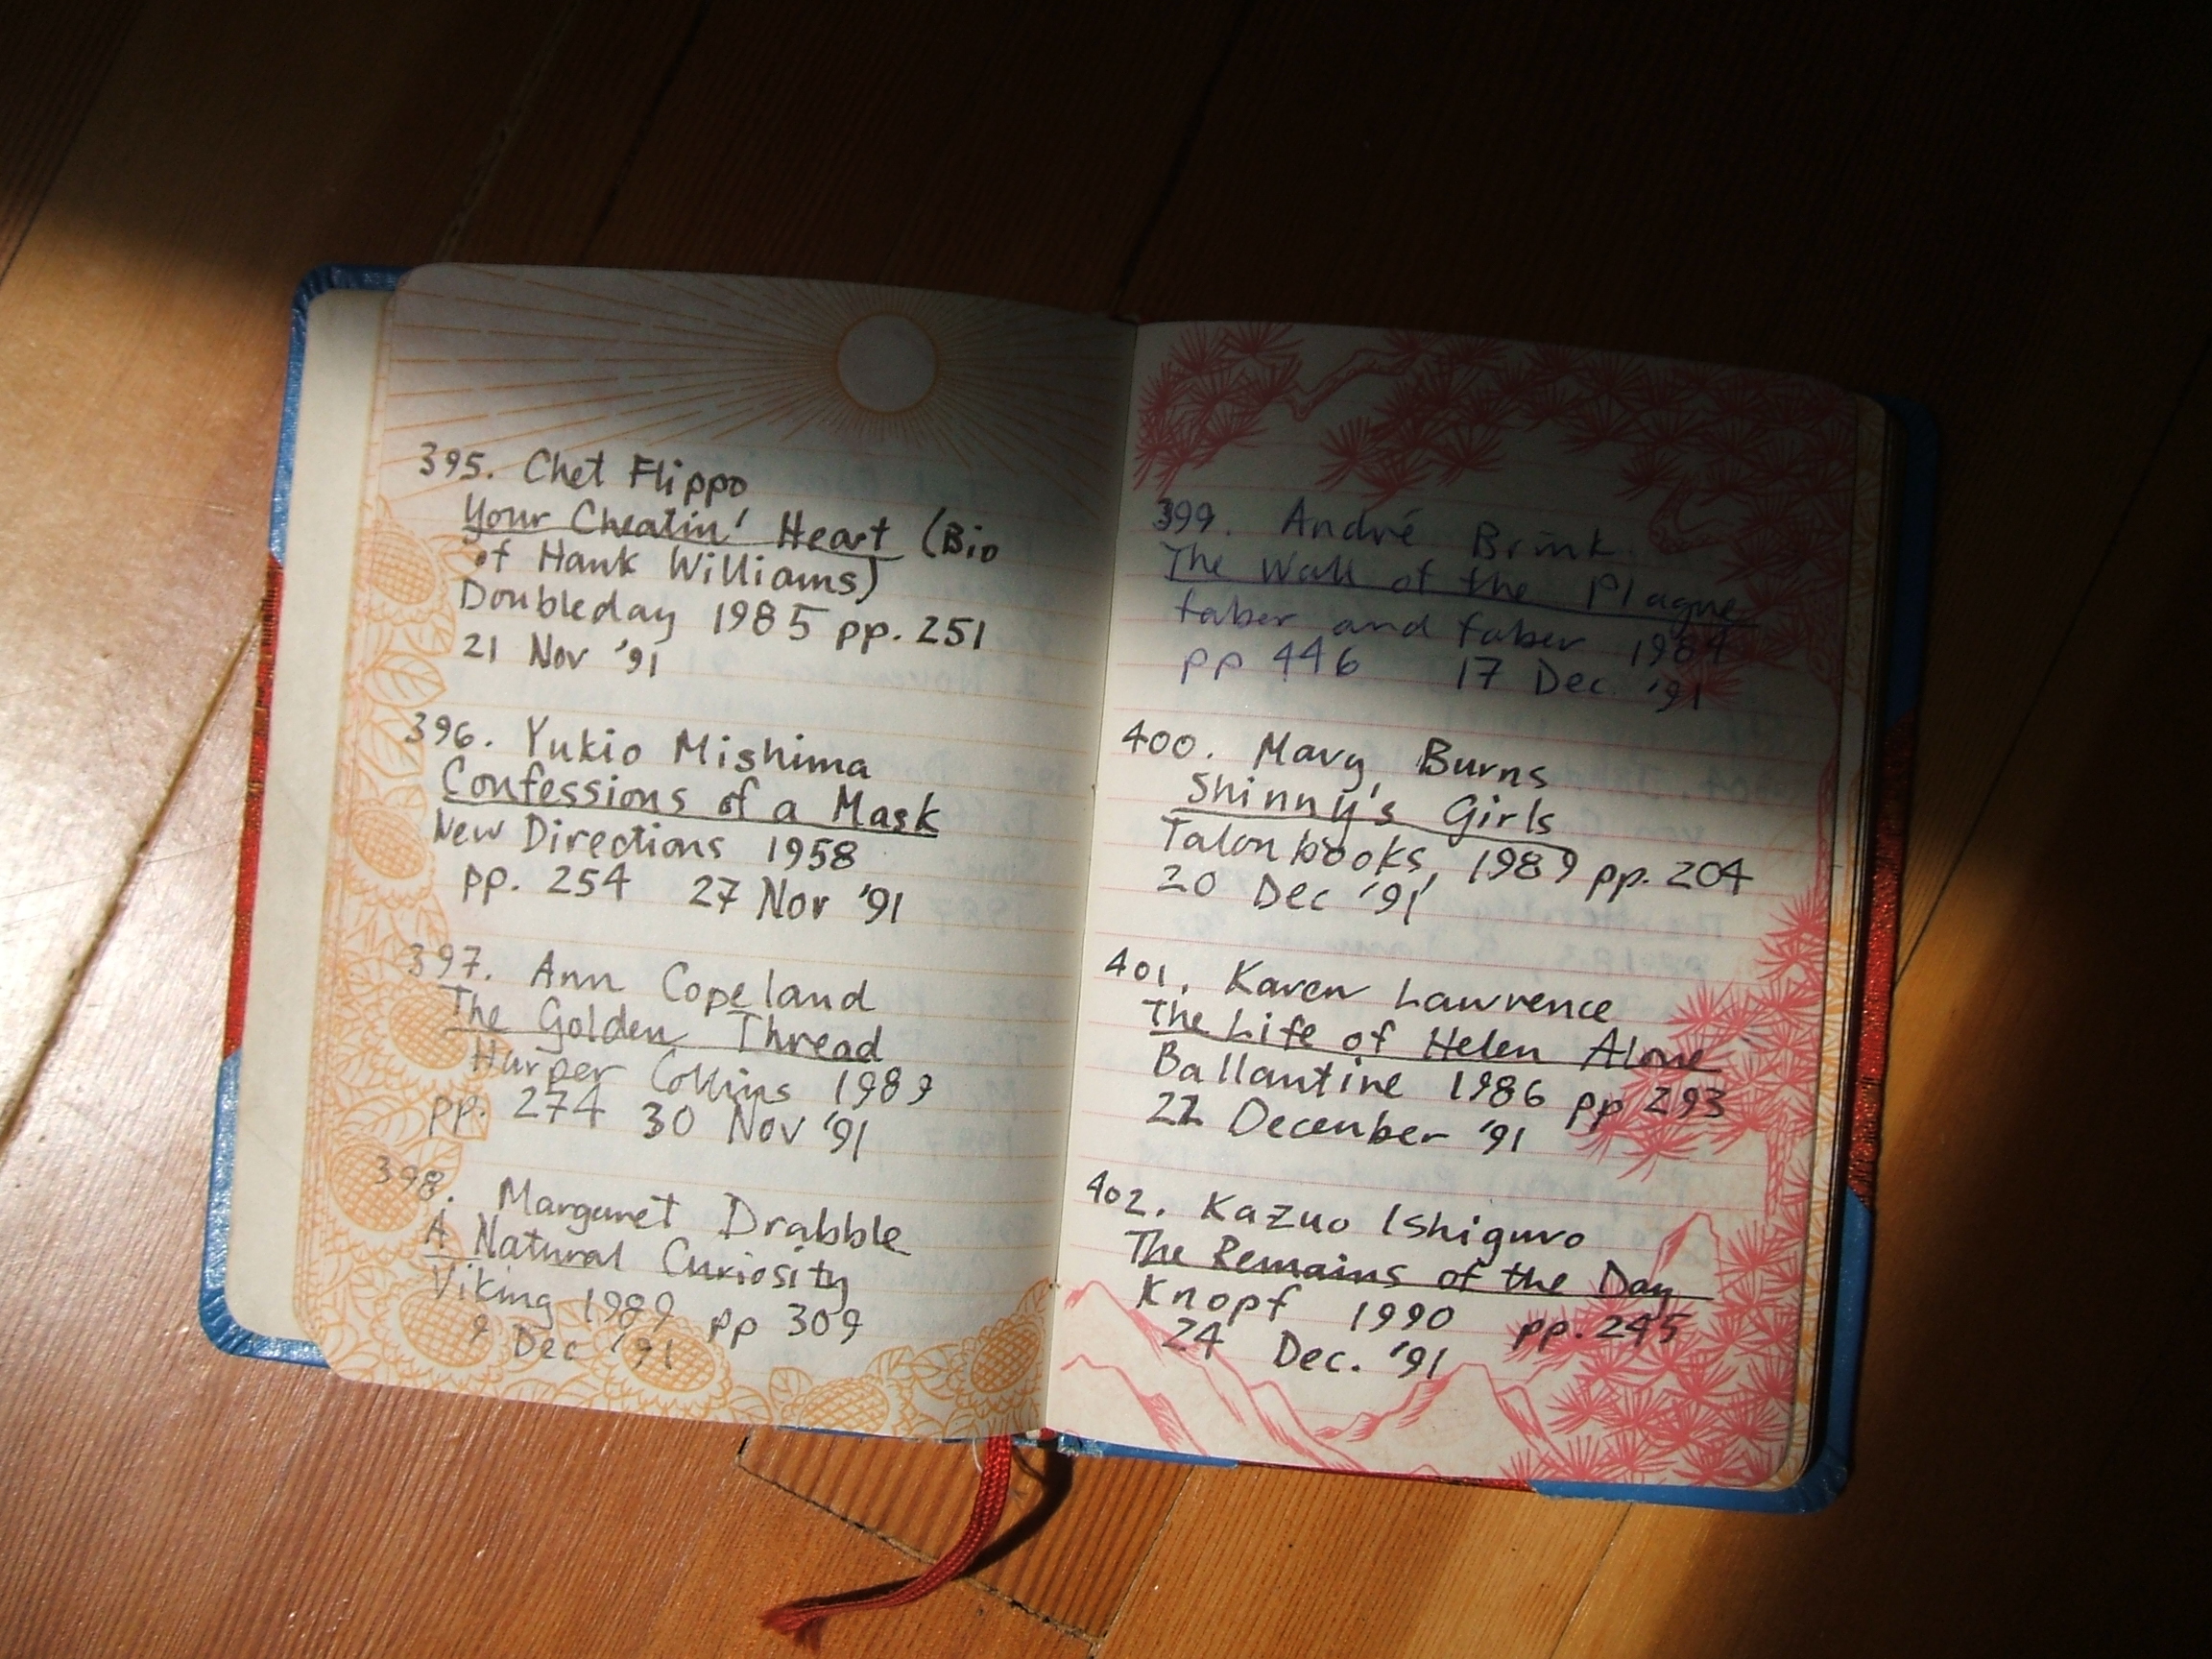 395. Chet Flippo
Your Cheatin' Heart (Bio
of Hank Williams)
Doubleday 1985 pp. 251
21 Nov '91
396. Yukio Mishima
Confessions of a Mask
New Directions 1958
pp. 254 27 Nov '91
397. Ann Copeland
The Golden Thread
Harper Collins 1989
pp. 274 30 Nov '91
398. Margaret Drabble
A Natural Curiosity
Viking 1989 pp 309
9 Dec '91
399. André Brink
The Wall of the Plague
faber and faber 1984
pp 446 17 Dec. '91
400. Mary Burns
Shinny's Girls
Talonbooks, 1989 pp. 204
20 Dec '91
401. Karen Lawrence
The Life of Helen Alone
Ballantine 1986 pp 293
22 December '91
402. Kazuo Ishiguro
The Remains of the Day
Knopf 1990 pp. 245
24 Dec. '91